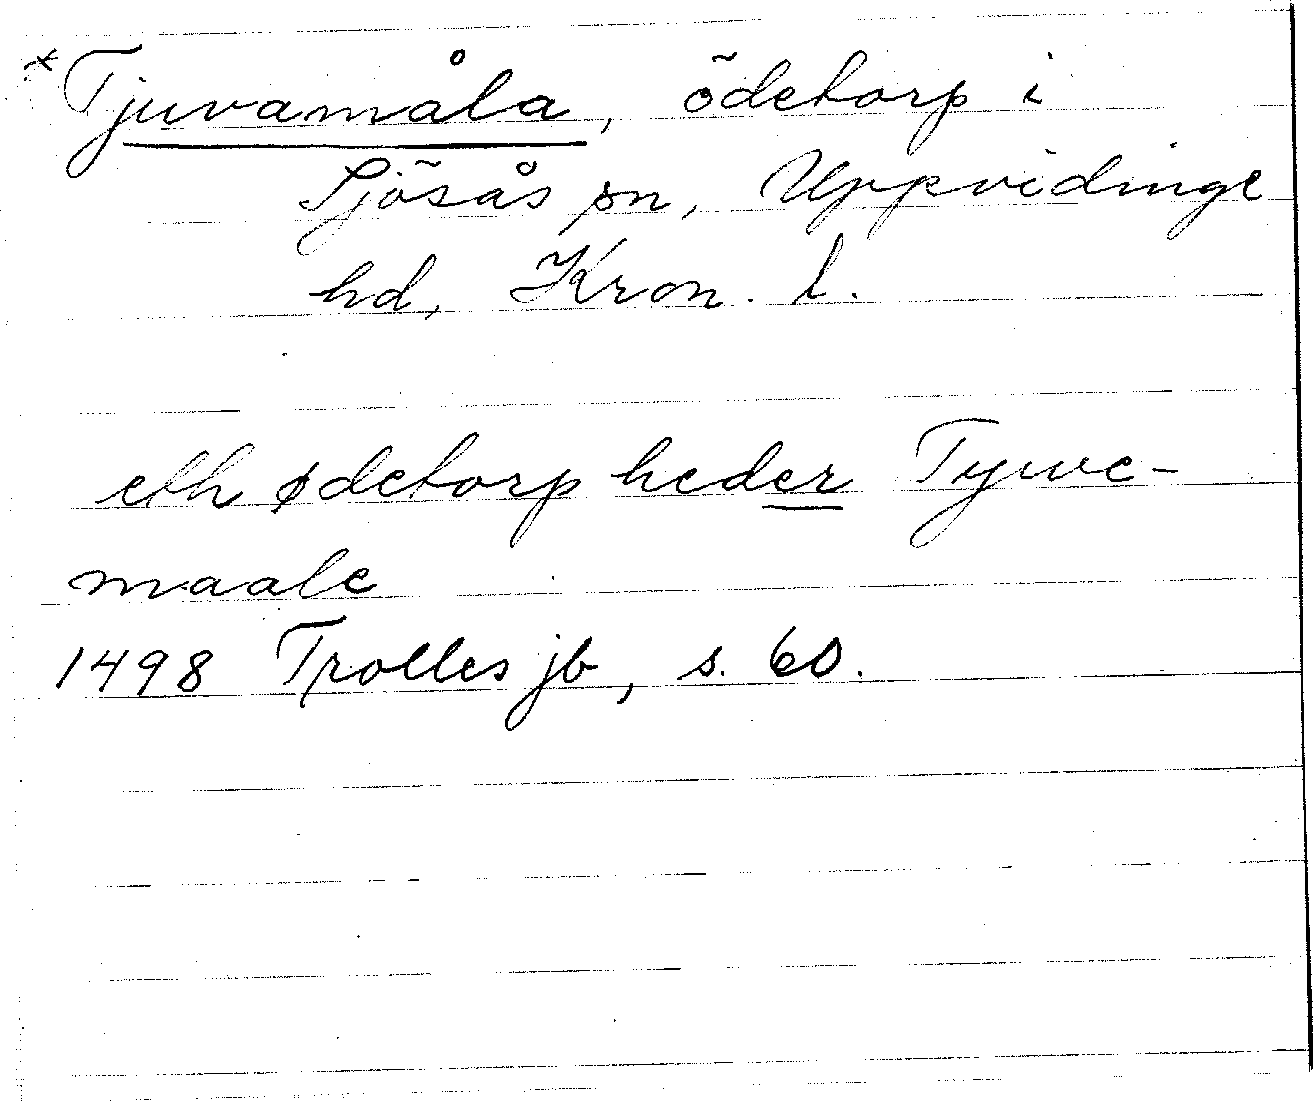 *Tjuvamåla, ödetorp i
Sjösås sn, Uppvidinge
hd, Kron. l.
eth ødetorp heder Tywe-
maale
1498 Trolles jb, s. 60.